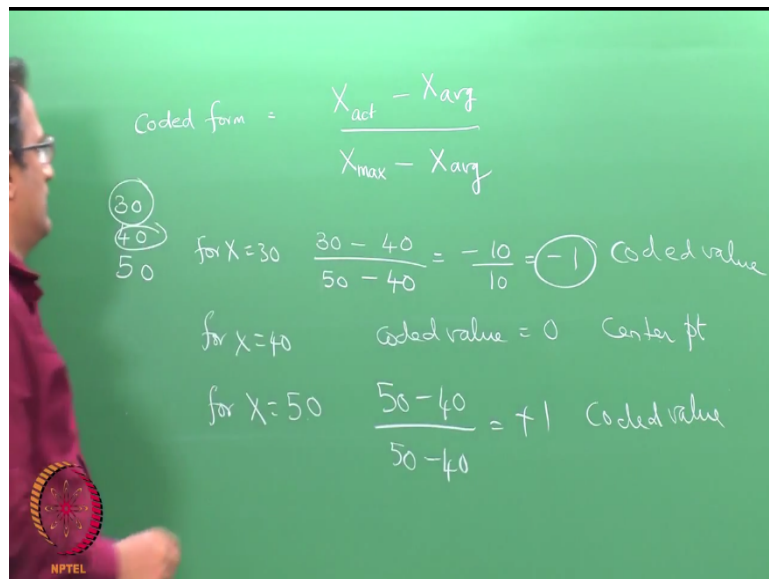 Coded form = (X_act - X_avg) / (X_max - X_avg)
30
40
50
for X=30 (30 - 40) / (50 - 40) = -10 / 10 = -1 Coded value
for X=40 Coded value = 0 Center pt
for X=50 (50 - 40) / (50 - 40) = +1 Coded value
NPTEL